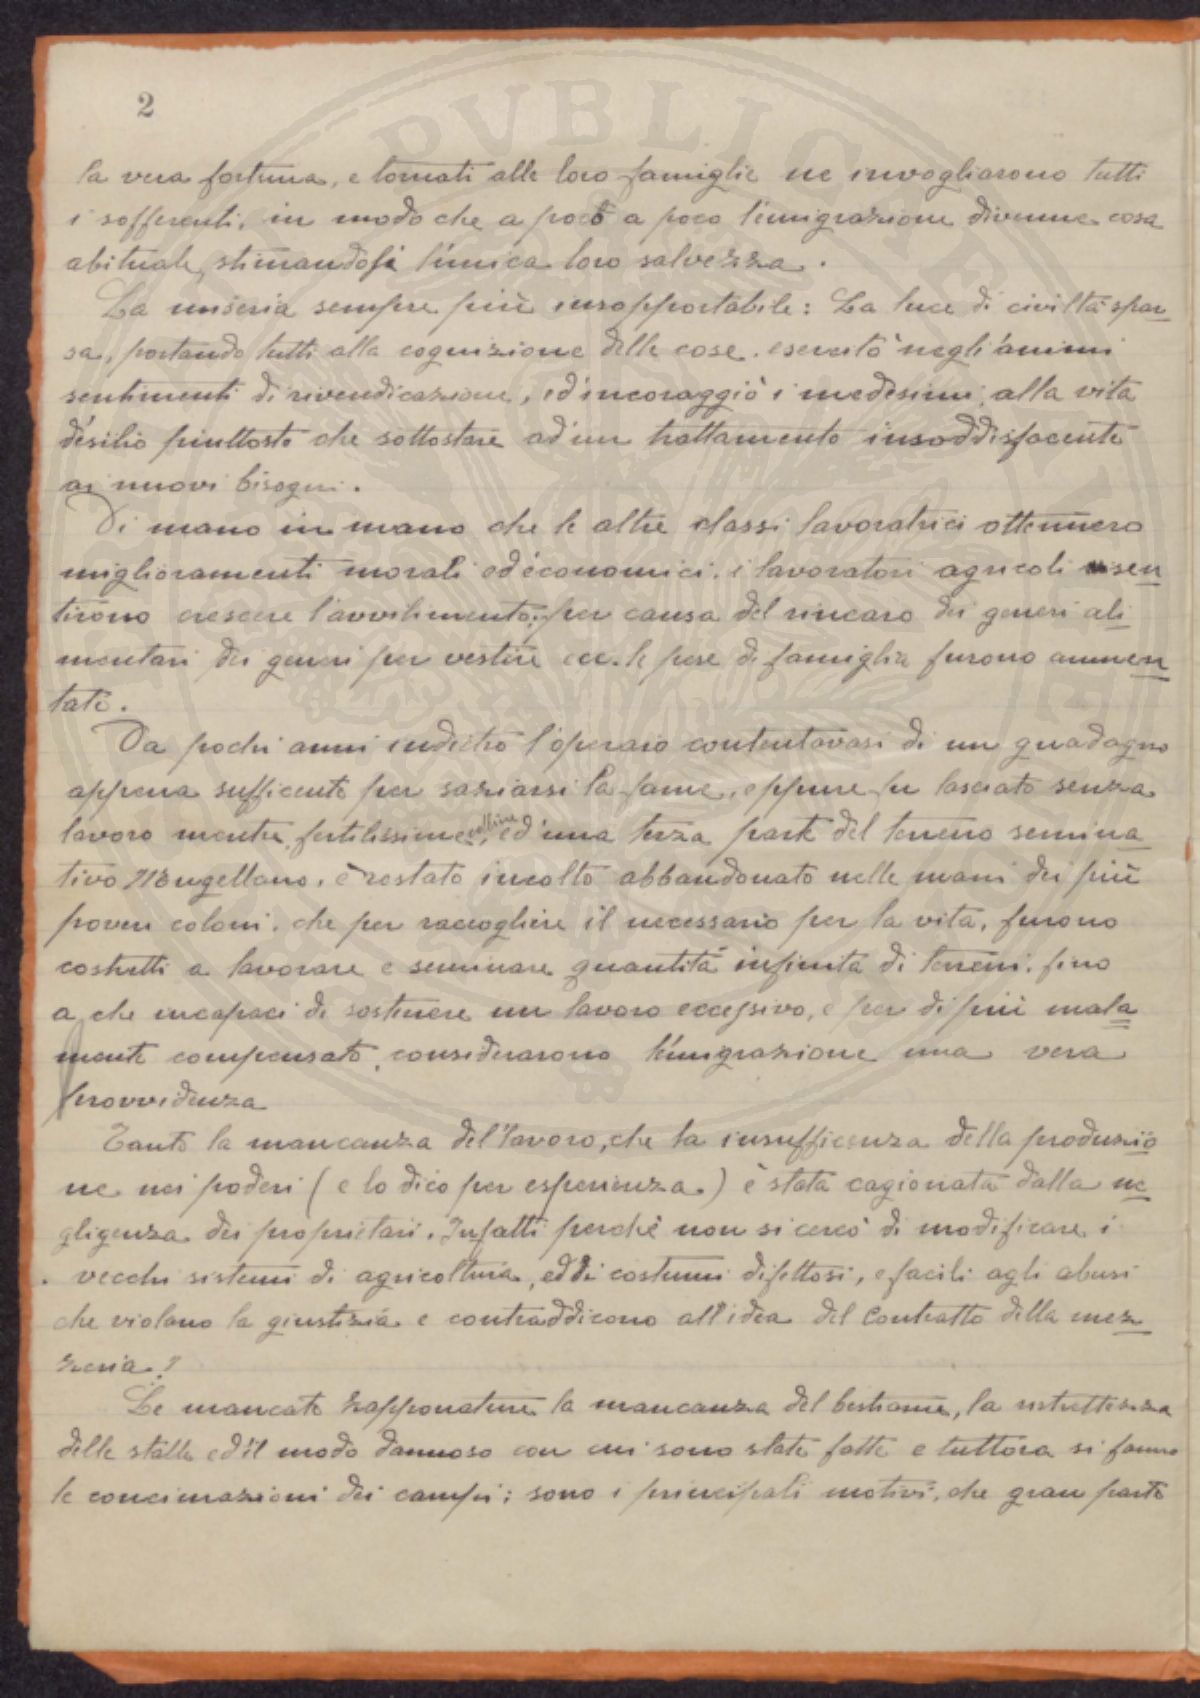 2
la vera fortuna, e tornati alle loro famiglie ne invogliarono tutti
i sofferenti, in modo che a poco a poco l'émigrazione divenne cosa
abituale, stimandosi l'unica loro salvezza.
La miseria sempre più insopportabile: La luce di civiltà spar
sa, portando tutti alla cognizione delle cose, esercitò negli animi
sentimenti di rivendicazione, ed incoraggiò i medesimi, alla vita
d'esilio piuttosto che sottostare ad un trattamento insoddisfacente
ai nuovi bisogni.
Di mano in mano che le altre classi lavoratrici ottennero
miglioramenti morali ed economici, i lavoratori agricoli sen
tirono crescere l'avvilimento, per causa del rincaro dei generi ali
mentari dei generi per vestire ecc. le pese di famiglia furono aumen
tate.
Da pochi anni indietro l'operaio contentavasi di un guadagno
appena sufficente per saziarsi la fame, eppure fu lasciato senza
lavoro mentre fertilissime colline, ed una terza parte del terreno semina
tivo Mugellano, è restato incolto abbandonato nelle mani dei più
poveri coloni, che per raccogliere il necessario per la vita, furono
costretti a lavorare e seminare quantità infinita di terreni, fino
a che incapaci di sostenere un lavoro eccessivo, e per di più mala
mente compensato, considerarono l'émigrazione una vera
provvidenza
Tanto la mancanza del lavoro, che la insufficenza della produzio
ne nei poderi (e lo dico per esperienza) è stata cagionata dalla ne
gligenza dei proprietari. Infatti perchè non si cercò di modificare i
vecchi sistemi di agricoltura, ed di costumi difettosi, e facili agli abusi
che violano la giustizia e contraddicono all'idea del Contratto della mez
zeria?
Le mancate zapponature la mancanza del bestiame, la ristrettezza
delle stalle ed il modo dannoso con cui sono state fatte e tuttora si fanno
le concimazioni dei campi; sono i principali motivi, che gran parte